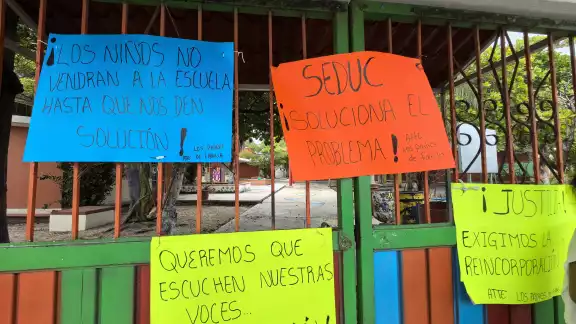 ¡LOS NIÑOS NO
VENDRAN A LA ESCUELA
HASTA QUE NOS DEN
SOLUCIÓN!
LOS PADRES
DE FAMILIA
SEDUC
¡SOLUCIONA EL
PROBLEMA!
ATTE
LOS PADRES
DE FAMILIA
QUEREMOS QUE
ESCUCHEN NUESTRAS
VOCES...
¡JUSTICIA!
EXIGIMOS LA
REINCORPORACIÓN
ATTE LOS PADRES DE